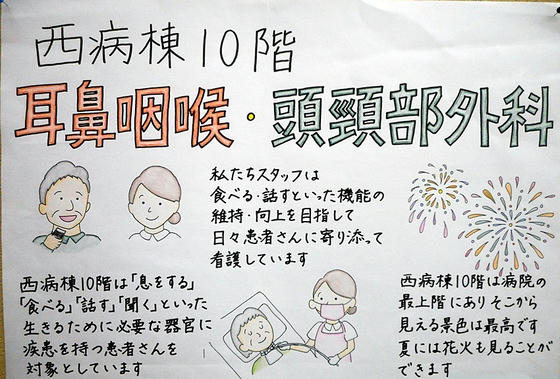 西病棟10階
耳鼻咽喉・頭頸部外科
私たちスタッフは
食べる・話すといった機能の
維持・向上を目指して
日々患者さんに寄り添って
看護しています
西病棟10階は「息をする」
「食べる」「話す」「聞く」といった
生きるために必要な器官に
疾患を持つ患者さんを
対象としています
西病棟10階は病院の
最上階にありそこから
見える景色は最高です
夏には花火も見ることが
できます